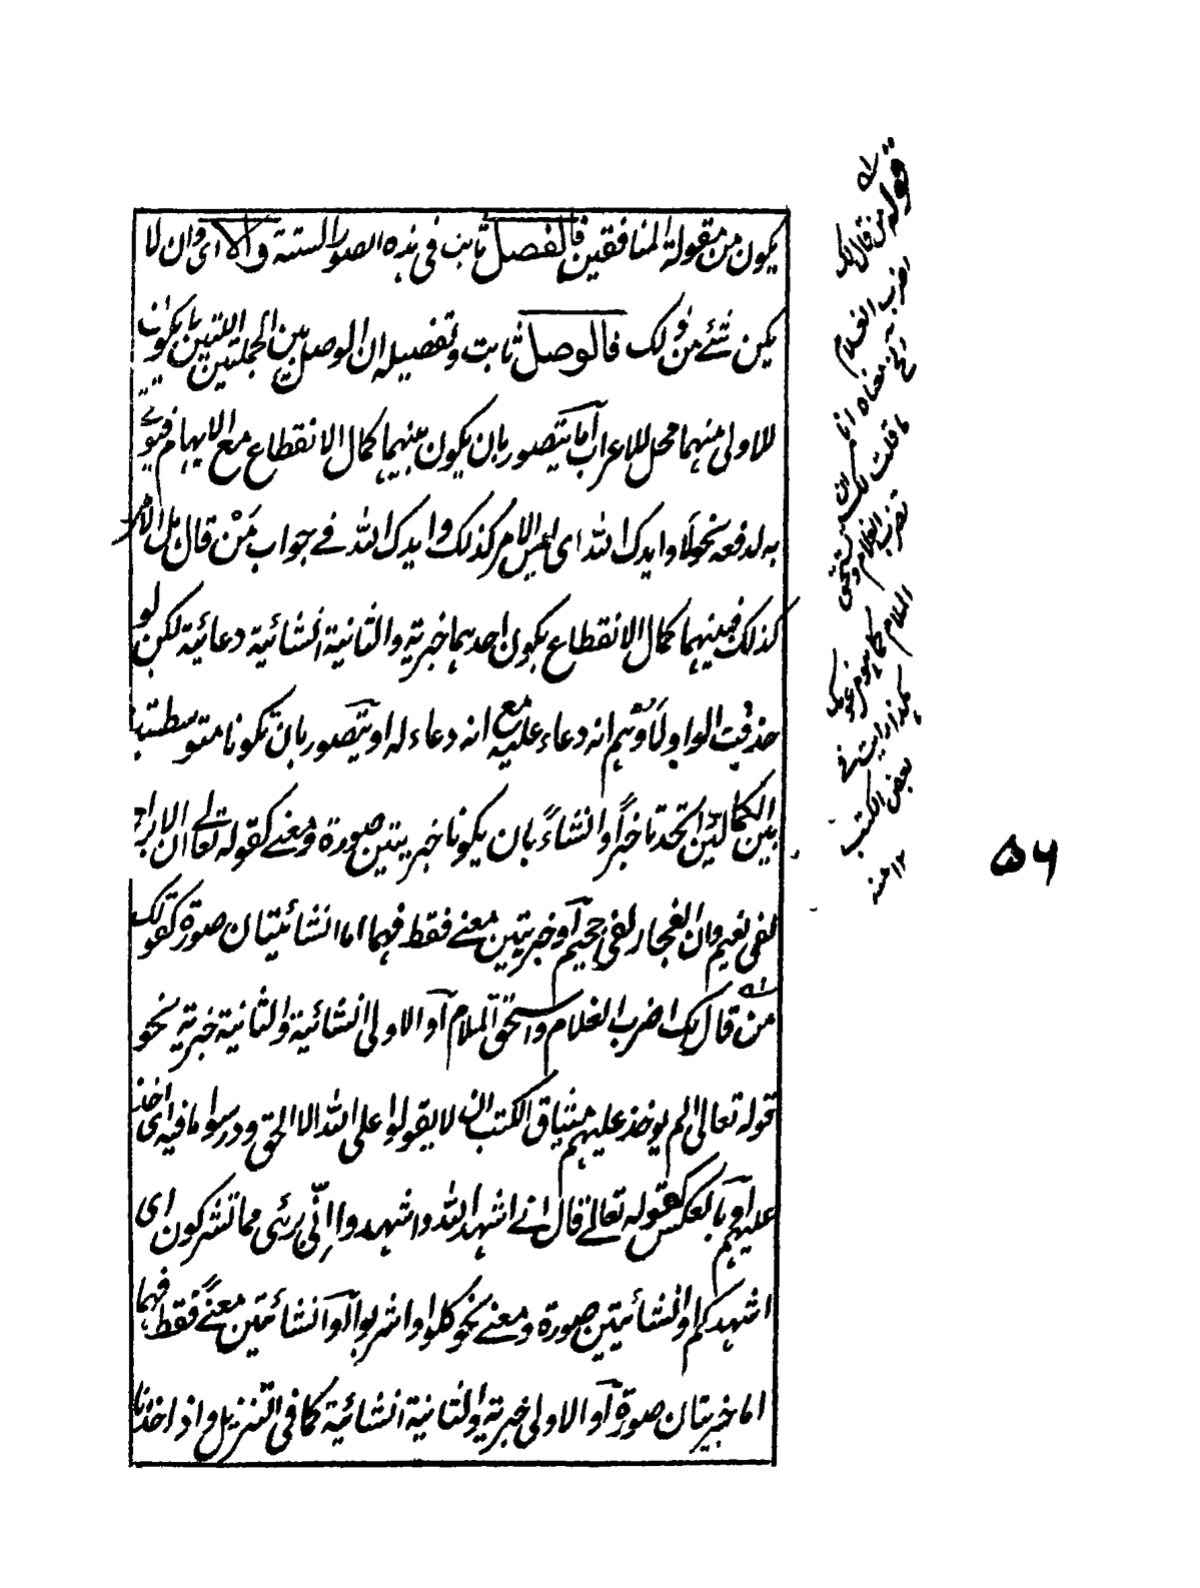 يكون من مقولة المنافقين فالفصل ثابت فى هذه الصور الستة والا اى وان لا
يكن شئ من ذلك فالوصل ثابت وتفصيله ان الوصل بين الجملتين اللتين ما يكون
للاولى منهما محل للاعراب اما يتصور بان يكون بينهما كمال الانقطاع مع الايهام فيؤتى
به لدفعه نحو لا وايدك الله اى ليس الامر كذلك وايدك الله فے جواب من قال هل الامر
كذلك فبينهما كمال الانقطاع بكون احدهما خبرية والثانية انشائية دعائية لكن لو
حذفت الواو لاوهم انه دعاء عليه مع انه دعاء له او يتصور بان تكونا متوسطتين
بين الكمالين اتحدتا خبرا وانشاءً بان يكونا خبريتين صورة ومعنے كقوله تعالے ان الابرار
لفى نعيم وان الفجار لفى جحيم او خبريتين معنے فقط فهما اما انشائيتان صورة كقولك
من قال لك اضرب الغلام واستحق الملام او الاولى انشائية والثانية خبرية نحو
قوله تعالى الم يوخذ عليهم ميثاق الكتب ان لا يقولوا على الله الا الحق ودرسوا ما فيه اى اخذ
عليهم او بالعكس كقوله تعالے قال انے اشهد الله واشهدوا انّى برئى مما تشركون اى
اشهدكم او انشائيتين صورة ومعنے نحو كلوا واشربوا او انشائيتين معنےً فقط فهما
اما خبريتان صورة او الاولى خبرية والثانية انشائية كما فى التنزيل واذ اخذنا
قوله من قال لك
اضرب الغلام
معناه انا
ما قلت لك ان
تضرب الغلام
الملام كما هو
هكذا رايت فے
بعض الكتب
١٢ منه
۵۶